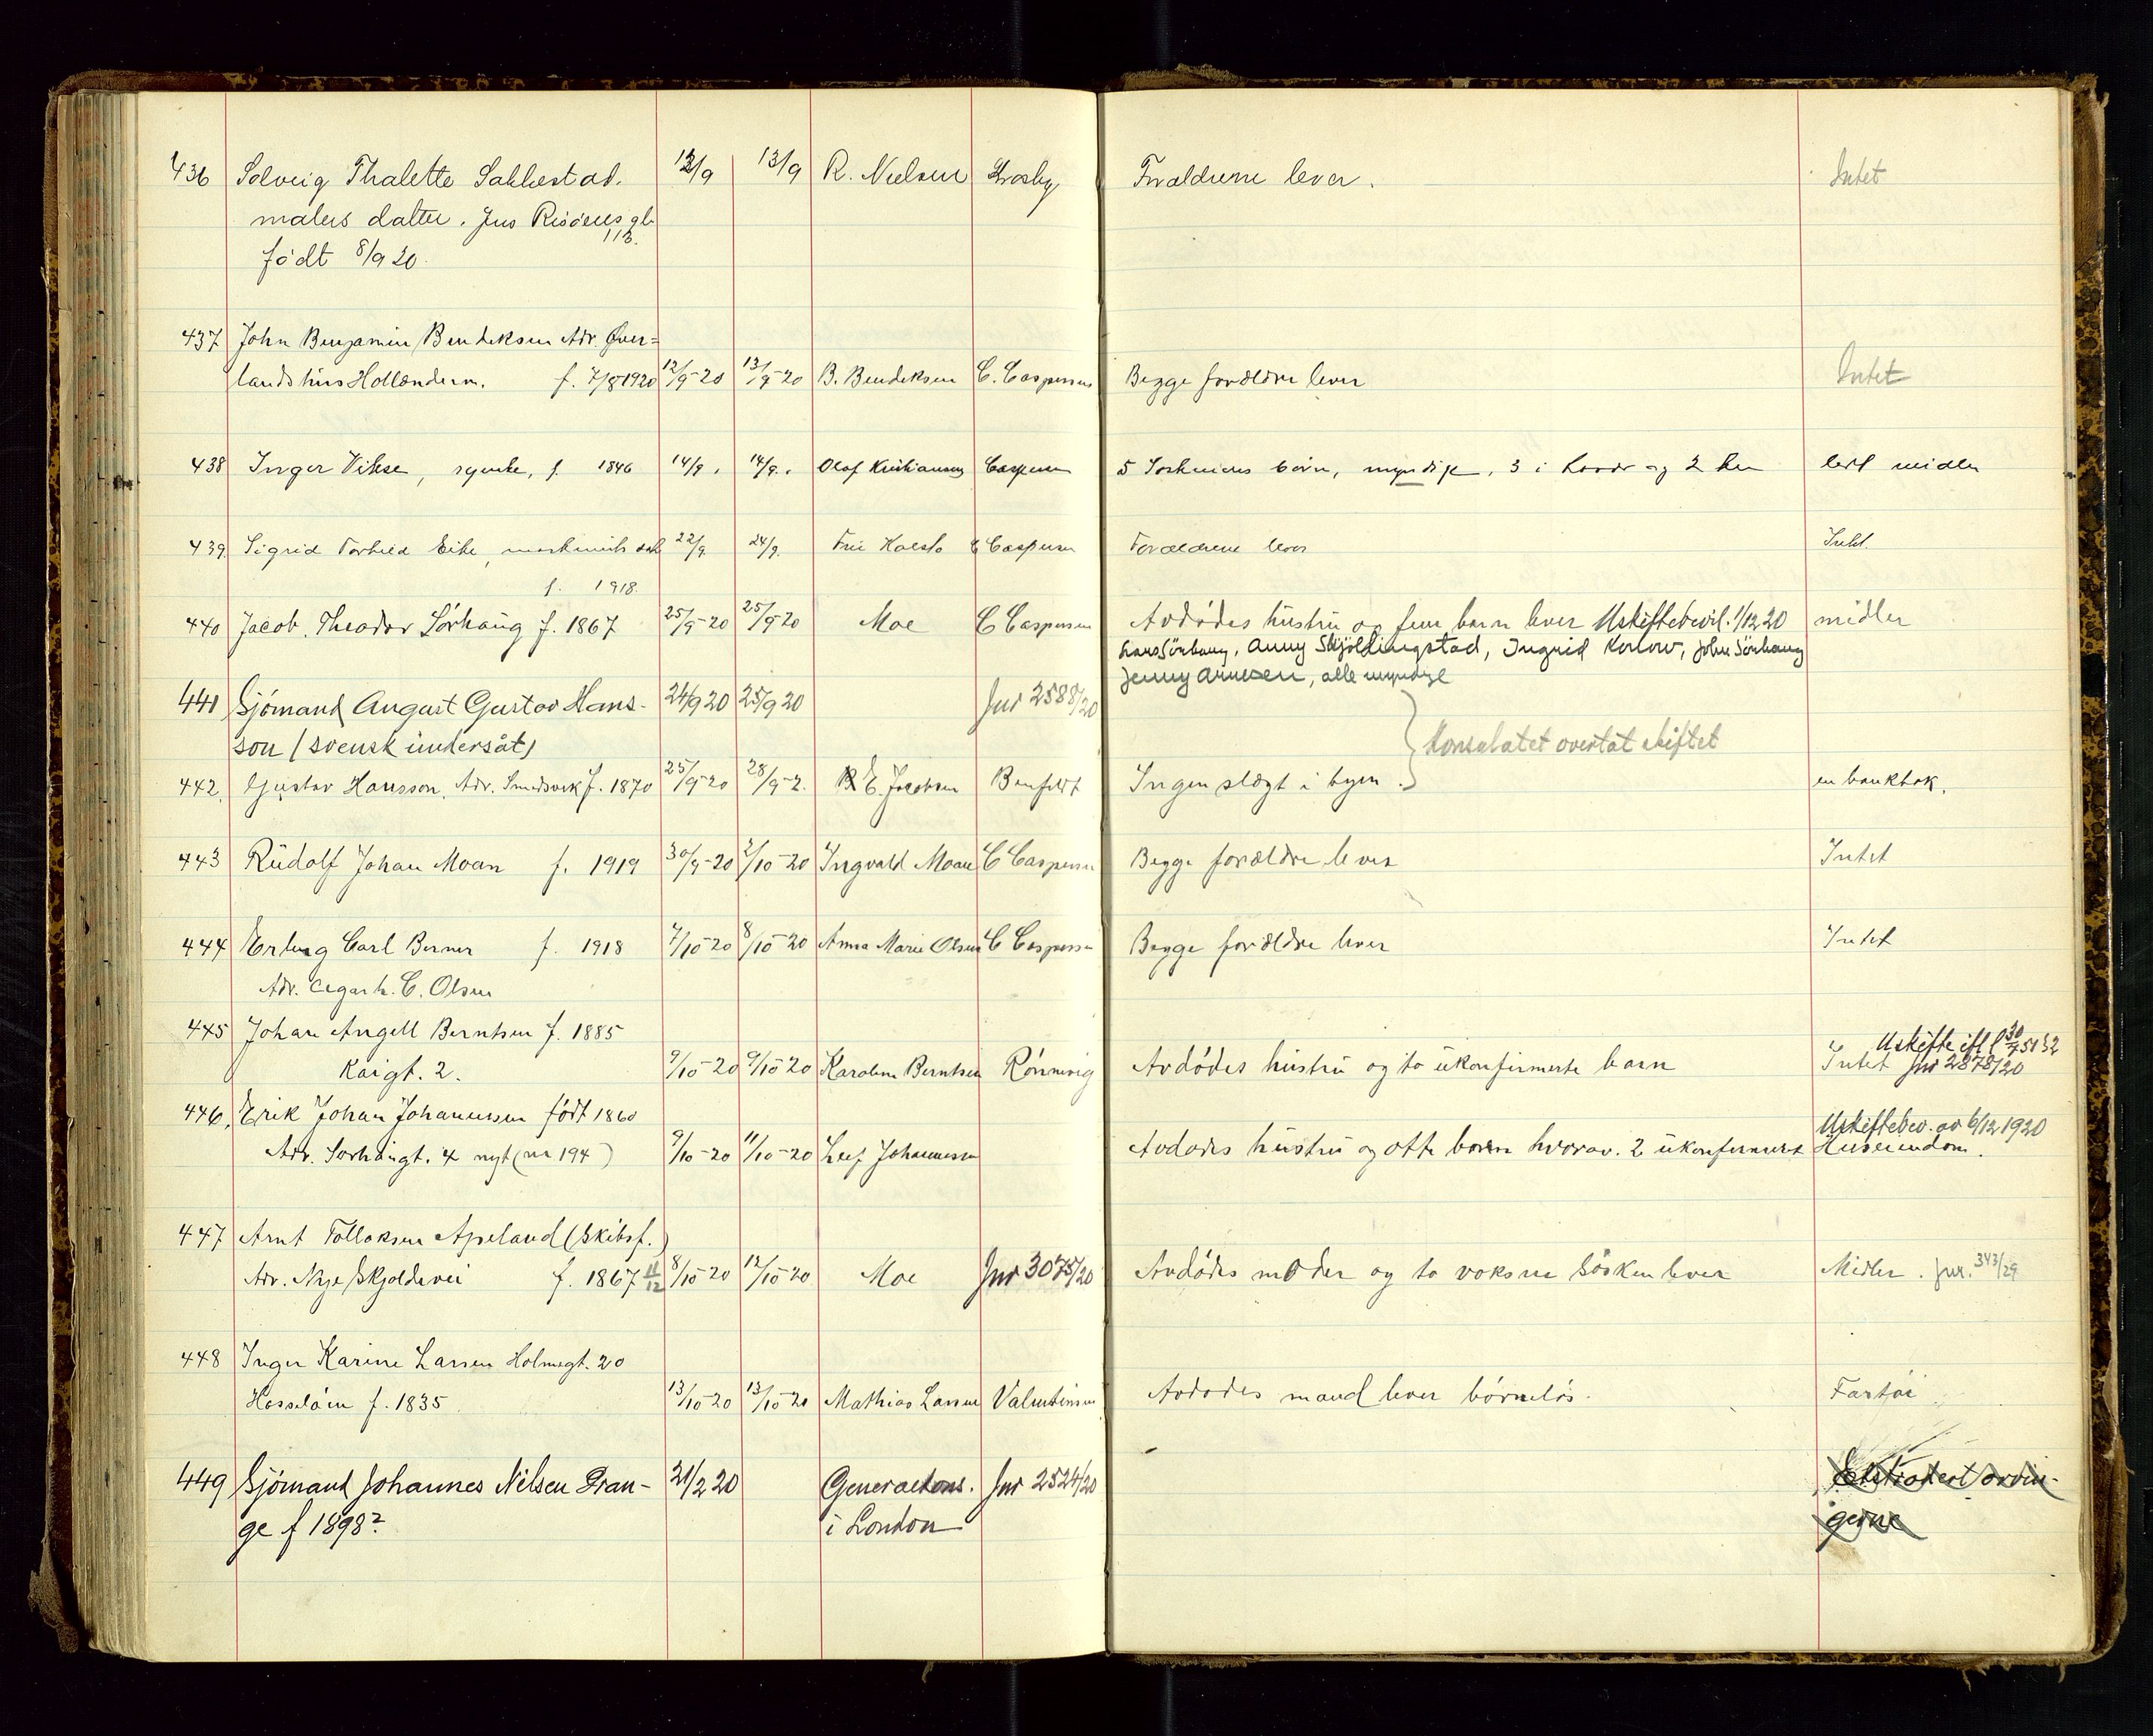 436 Solveig Thalette Sakkestad. 12/9 13/9 R. Nielsen Frosby Forældrene lever. Intet
malers datter. Jens Risøens gt.
113.
født 8/9 20.
437 John Benjamin Bendiksen Adr. Øver=
landshus Hollenderm. f. 7/8 1920 12/9-20 13/9-20 B. Bendiksen C. Caspersen Begge forældre lever Intet
438 Inger Vikse, syerske, f. 1846 14/9. 14/9. Olaf Kristiansen Caspersen 5 Søskenes børn, myndige, 3 i og 2 her lidt midler
439. Sigrid Torhild Eike, maskinists dat 22/9. 24/9. Fru Kolstø C Caspersen Forældrene lever Intet.
f. 1918.
440 Jacob. Theodor Sörhaug f. 1867 25/9-20 25/9 20 Moe C Caspersen Avdødes hustru og fem barn lever Uskiftebevil. 1/12 20 midler
Hans Sörhaug, Anny Skjoldingstad, Ingrid, John Sörhaug
Jenny Arnesen, alle myndige
441 Sjömand August Gustav Hans- 24/9 20 25/9 20 Jnr 2588/20
son (svensk undersåt) Konsulatet overtat skiftet
442. Gustav Hansson, Adr. Smedsvik f. 1870 25/9-20 28/9-2. E. Jacobsen Banfeldt Ingen slægt i byen. en bankbok.
443 Rudolf Johan Moan f. 1919 30/9-20 2/10-20 Ingvald Moan C Caspersen Begge forældre lever Intet
444 Erling Carl Berner f. 1918 7/10-20 8/10-20 Anna Marie Olsen C Caspersen Begge forældre lever Intet
Adr. Cigarh. C. Olsen
445 Johan Angell Berntsen f. 1885
Uskifte
Kaigt. 2. 9/10-20 9/10 20 Karoline Berntsen Rönnevig Avdødes hustru og to ukonfirmerte barn Intet Jnr 2878/20
446. Erik Johan Johannessen født 1860
Uskiftebev. av 6/12 1920
Adr. Sørhaugt. 4 nyt (nr 194) 9/10-20 11/10-20 Leif Johannessen Avdødes hustru og otte barn hvorav. 2 ukonfirmeret Huseiendom.
447 Arnt Tollaksen Apeland (Skibsf.)
Adr. Nye Skjoldevei f. 1867 11/12 8/10-20 12/10-20 Moe Jnr 3075/20 Avdødes moder og to voksne søsken lever Midler. Jnr. 343/29
448 Inger Karine Larsen Holmegt. 20
Hasseløen f. 1835 13/10-20 13/10-20 Mathias Larsen Valentinsen Avdødes mand lever børneløs. Fartøi
449 Sjömand Johannes Nilsen Dran- 21/2 20 Generalkons. Jnr 2524/20
ge f 1898? i London